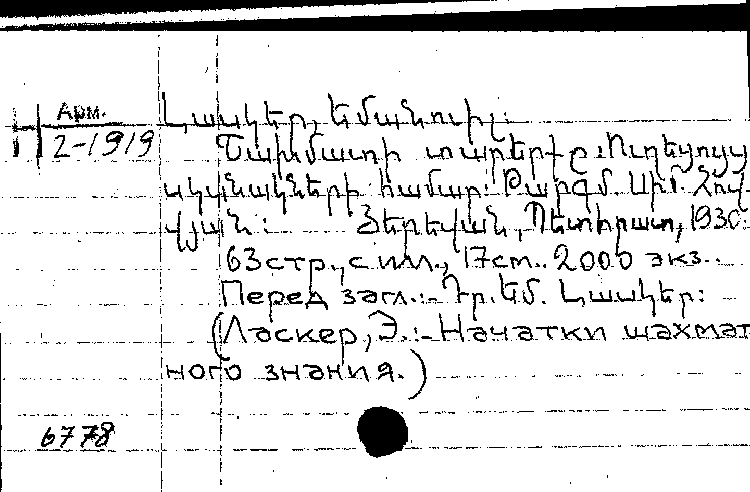 Н Арм. 2-1919
Լասկեր, Եմանուիլ:
Շախմատի տարրերը: Ուղեցույց
սկսնակների համար: Թարգմ. Սիմ. Հով-
վյան: Յերեվան, Պետհրատ, 1930.
63стр., с илл., 17см.. 2000 экз..
Перед загл.:- Դր. Եմ. Լասկեր:
(Ласкер, Э.:- Начатки шахмат
ного знания.)
6778